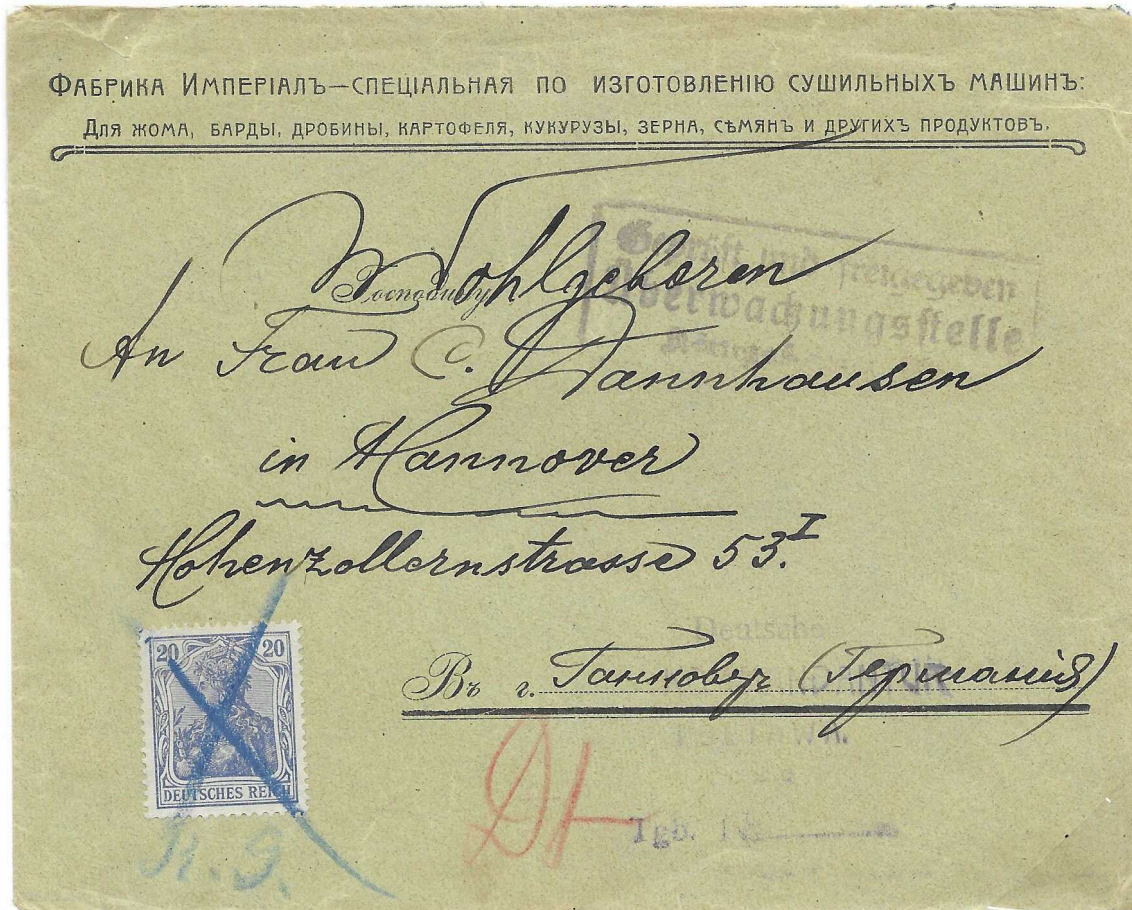 Фабрика Имперіалъ—спеціальная по изготовленію сушильныхъ машинъ:
Для жома, барды, дробины, картофеля, кукурузы, зерна, сѣмянъ и другихъ продуктовъ.
Geprüft und freigegeben
Überwachungsstelle
Господину
Wohlgeboren
An Frau C. Dannhausen
in Hannover
Hohenzollernstrasse 53.I
Deutsche
Въ г. Ганноверъ (Германія)
20 20
DEUTSCHES REICH
Tgb.